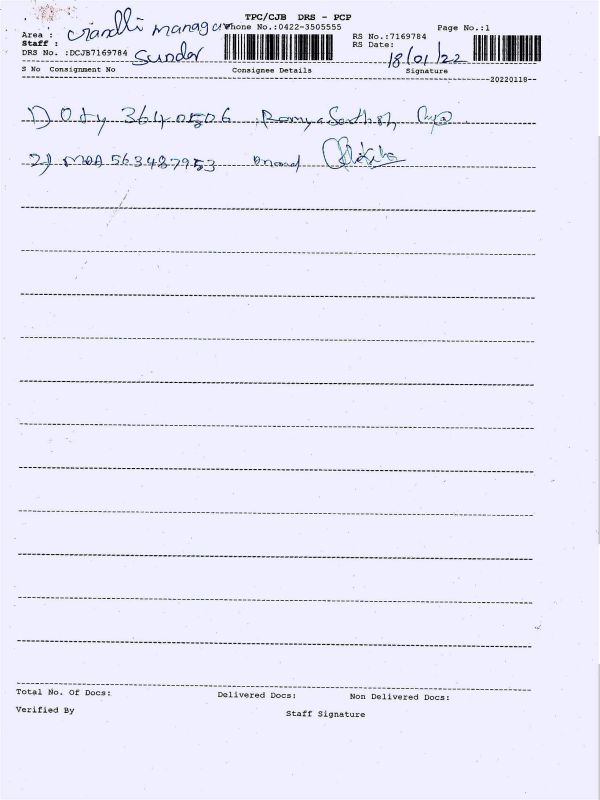 TPC/CJB DRS - PCP
Area : Gandhi managar Phone No.:0422-3505555 RS No.:7169784 Page No.:1
Staff : RS Date: 18/01/22
DRS No. :DCJB7169784 Sunder
S No Consignment No Consignee Details Signature
20220118
1) Oty 36140506 Ramya Santhosh
2) MAA 563487953
Total No. Of Docs: Delivered Docs: Non Delivered Docs:
Verified By Staff Signature